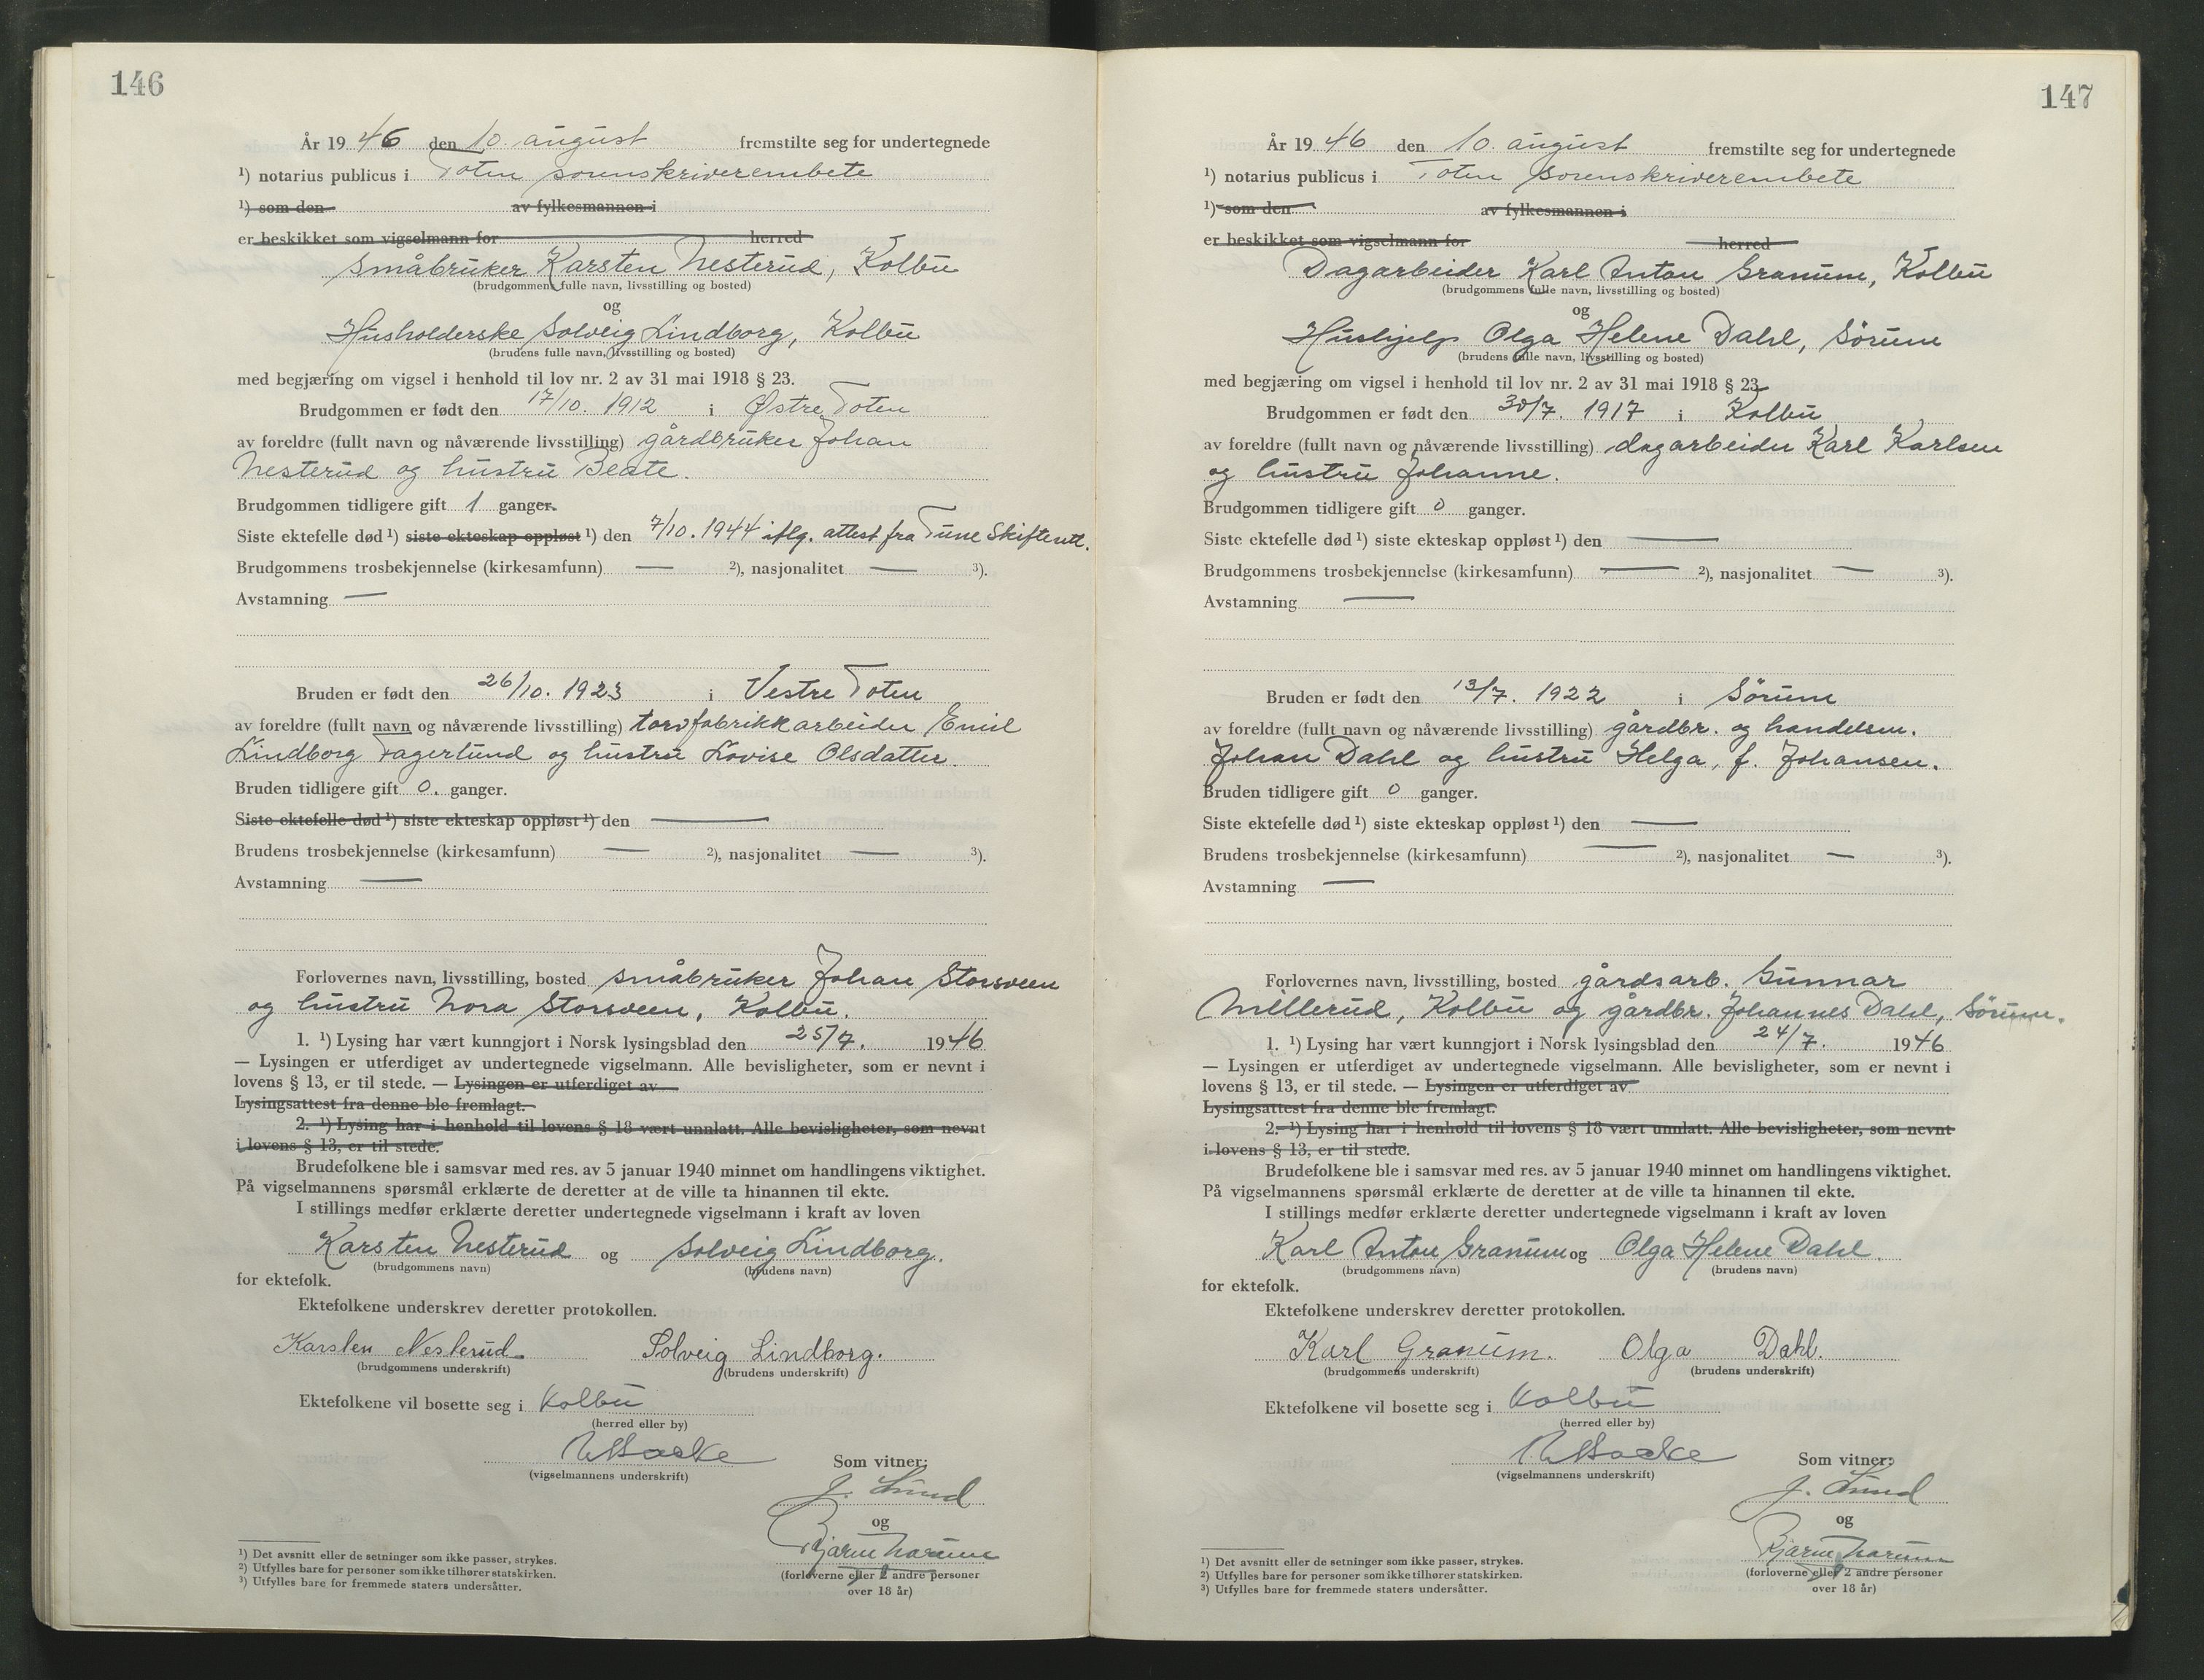 146
År 19 46 den 10. august fremstilte seg for undertegnede
¹) notarius publicus i Toten sorenskriverembete
¹) som den av fylkesmannen i
er beskikket som vigselmann for herred
småbruker Karsten Nesterud, Kolbu
(brudgommens fulle navn, livsstilling og bosted)
og
Husholderske Solveig Lindborg, Kolbu
(brudens fulle navn, livsstilling og bosted)
med begjæring om vigsel i henhold til lov nr. 2 av 31 mai 1918 § 23.
Brudgommen er født den 17/10. 1912 i Østre Toten
av foreldre (fullt navn og nåværende livsstilling) gårdbruker Johan
Nesterud og hustru Beate.
Brudgommen tidligere gift 1 ganger.
Siste ektefelle død ¹) siste ekteskap oppløst ¹) den 7/10. 1944 iflg. attest fra Tune Skifterett.
Brudgommens trosbekjennelse (kirkesamfunn) — ²), nasjonalitet — ³).
Avstamning —
Bruden er født den 26/10. 1923 i Vestre Toten
av foreldre (fullt navn og nåværende livsstilling) torvfabrikkarbeider Emil
Lindborg Fagerlund og hustru Lovise Olsdatter.
Bruden tidligere gift 0. ganger.
Siste ektefelle død ¹) siste ekteskap oppløst ¹) den —
Brudens trosbekjennelse (kirkesamfunn) — ²), nasjonalitet — ³).
Avstamning —
Forlovernes navn, livsstilling, bosted småbruker Johan Storsveen
og hustru Nora Storsveen, Kolbu.
1. ¹) Lysing har vært kunngjort i Norsk lysingsblad den 25/7. 1946
— Lysingen er utferdiget av undertegnede vigselmann. Alle bevisligheter, som er nevnt i
lovens § 13, er til stede. — Lysingen er utferdiget av
Lysingsattest fra denne ble fremlagt.
2. ¹) Lysing har i henhold til lovens § 18 vært unnlatt. Alle bevisligheter, som nevnt
i lovens § 13, er til stede.
Brudefolkene ble i samsvar med res. av 5 januar 1940 minnet om handlingens viktighet.
På vigselmannens spørsmål erklærte de deretter at de ville ta hinannen til ekte.
I stillings medfør erklærte deretter undertegnede vigselmann i kraft av loven
Karsten Nesterud og Solveig Lindborg.
(brudgommens navn) (brudens navn)
for ektefolk.
Ektefolkene underskrev deretter protokollen.
Karsten Nesterud. Solveig Lindborg.
(brudgommens underskrift) (brudens underskrift)
Ektefolkene vil bosette seg i Kolbu
(herred eller by)
(vigselmannens underskrift)
Som vitner:
J. Lund
og
Bjarne
(forloverne eller 2 andre personer
over 18 år)
¹) Det avsnitt eller de setninger som ikke passer, strykes.
²) Utfylles bare for personer som ikke tilhører statskirken.
³) Utfylles bare for fremmede staters undersåtter.
147
År 19 46 den 10. august fremstilte seg for undertegnede
¹) notarius publicus i Toten sorenskriverembete
¹) som den av fylkesmannen i
er beskikket som vigselmann for herred
Dagarbeider Karl Anton Granum, Kolbu
(brudgommens fulle navn, livsstilling og bosted)
og
Hushjelp Olga Helene Dahl, Sørum
(brudens fulle navn, livsstilling og bosted)
med begjæring om vigsel i henhold til lov nr. 2 av 31 mai 1918 § 23
Brudgommen er født den 30/7. 1917 i Kolbu
av foreldre (fullt navn og nåværende livsstilling) dagarbeider Karl Karlsen
og hustru Johanne.
Brudgommen tidligere gift 0 ganger.
Siste ektefelle død ¹) siste ekteskap oppløst ¹) den —
Brudgommens trosbekjennelse (kirkesamfunn) — ²), nasjonalitet — ³).
Avstamning —
Bruden er født den 13/7. 1922 i Sørum
av foreldre (fullt navn og nåværende livsstilling) gårdbr. og handelsm.
Johan Dahl og hustru Helga, f. Johansen.
Bruden tidligere gift 0 ganger.
Siste ektefelle død ¹) siste ekteskap oppløst ¹) den —
Brudens trosbekjennelse (kirkesamfunn) — ²), nasjonalitet — ³).
Avstamning —
Forlovernes navn, livsstilling, bosted gårdsarb. Gunnar
Millerud, Kolbu og gårdbr. Johannes Dahl, Sørum.
1. ¹) Lysing har vært kunngjort i Norsk lysingsblad den 24/7. 1946
— Lysingen er utferdiget av undertegnede vigselmann. Alle bevisligheter, som er nevnt i
lovens § 13, er til stede. — Lysingen er utferdiget av
Lysingsattest fra denne ble fremlagt.
2. ¹) Lysing har i henhold til lovens § 18 vært unnlatt. Alle bevisligheter, som nevnt
i lovens § 13, er til stede.
Brudefolkene ble i samsvar med res. av 5 januar 1940 minnet om handlingens viktighet.
På vigselmannens spørsmål erklærte de deretter at de ville ta hinannen til ekte.
I stillings medfør erklærte deretter undertegnede vigselmann i kraft av loven
Karl Anton Granum og Olga Helene Dahl.
(brudgommens navn) (brudens navn)
for ektefolk.
Ektefolkene underskrev deretter protokollen.
Karl Granum. Olga Dahl.
(brudgommens underskrift) (brudens underskrift)
Ektefolkene vil bosette seg i Kolbu
(herred eller by)
(vigselmannens underskrift)
Som vitner:
J. Lund
og
Bjarne
(forloverne eller 2 andre personer
over 18 år)
¹) Det avsnitt eller de setninger som ikke passer, strykes.
²) Utfylles bare for personer som ikke tilhører statskirken.
³) Utfylles bare for fremmede staters undersåtter.